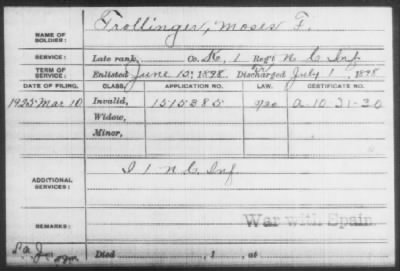 NAME OF SOLDIER: Trollinger, Moses F.
SERVICE: Late rank, Co. K, 1 Reg't N. C. Inf
TERM OF SERVICE: Enlisted June 10, 1898. Discharged July 1, 1898
DATE OF FILING. CLASS. APPLICATION NO. LAW. CERTIFICATE NO.
1925 Mar 10 Invalid, 1515385 A-10-31-30
Widow,
Minor,
ADDITIONAL SERVICES: I 1 N. C. Inf
REMARKS: War with Spain
Died , 1 , at